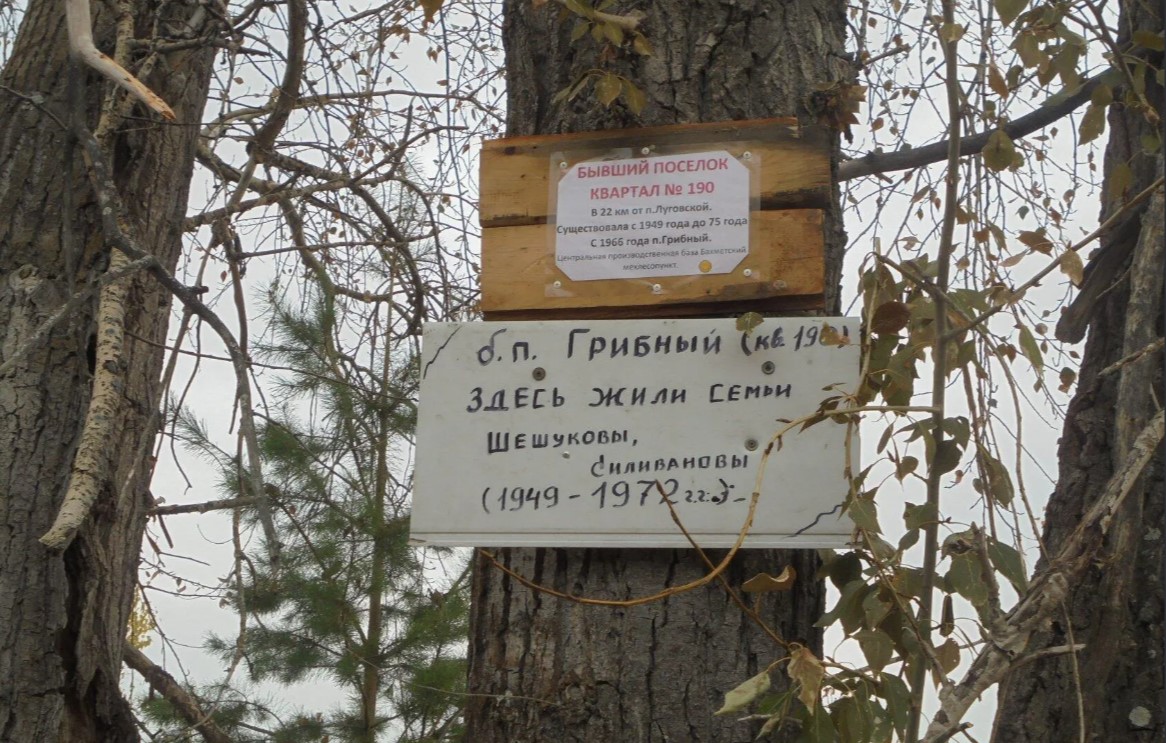 БЫВШИЙ ПОСЕЛОК
КВАРТАЛ № 190
В 22 км от п.Луговской.
Существовала с 1949 года до 75 года
С 1966 года п.Грибный.
Центральная производственная база
мехлесопункт.
б.п. ГРИБНЫЙ (кв.
ЗДЕСЬ ЖИЛИ СЕМЬИ
ШЕШУКОВЫ,
СИЛИВАНОВЫ
(1949-1972 г.г.)